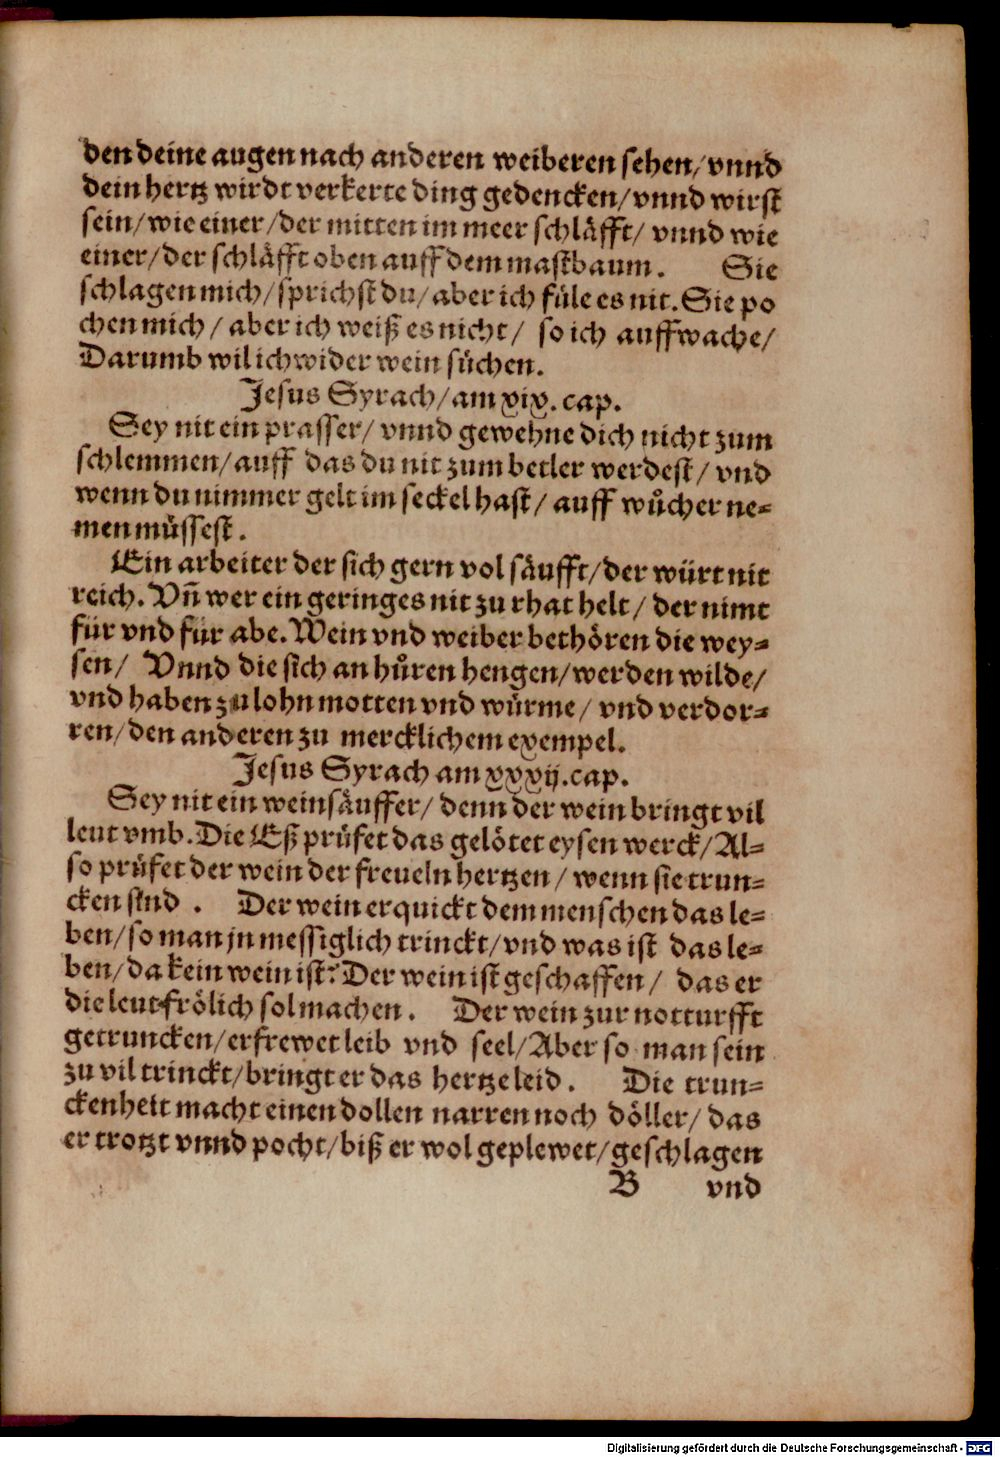 den deine augen nach anderen weiberen sehen/ vnnd
dein hertz wirdt verkerte ding gedencken/ vnnd wirst
sein/ wie einer/ der mitten im meer schläfft/ vnnd wie
einer/ der schläfft oben auff dem mastbaum. Sie
schlagen mich/ sprichst du/ aber ich füle es nit. Sie po
chen mich/ aber ich weiß es nicht/ so ich auffwache/
Darumb wil ich wider wein sůchen.
Jesus Syrach/ am xix. cap.
Sey nit ein prasser/ vnnd gewehne dich nicht zum
schlemmen/ auff das du nit zum betler werdest/ vnd
wenn du nimmer gelt im seckel hast/ auff wůcher ne-
men müssest.
Ein arbeiter der sich gern vol säufft/ der würt nit
reich. Vñ wer ein geringes nit zu rhat helt/ der nimt
für vnd für abe. Wein vnd weiber bethören die wey-
sen/ Vnnd die sich an hůren hengen/ werden wilde/
vnd haben zu lohn motten vnd würme/ vnd verdor-
ren/ den anderen zu mercklichem exempel.
Jesus Syrach am xxxij. cap.
Sey nit ein weinsäuffer/ denn der wein bringt vil
leut vmb. Die Eß prüfet das gelötet eysen werck/ Al-
so prüfet der wein der freueln hertzen/ wenn sie trun-
cken sind. Der wein erquickt dem menschen das le-
ben/ so man jn messiglich trinckt/ vnd was ist das le-
ben/ da kein wein ist? Der wein ist geschaffen/ das er
die leut frölich sol machen. Der wein zur notturfft
getruncken/ erfrewet leib vnd seel/ Aber so man sein
zu vil trinckt/ bringt er das hertzeleid. Die trun-
ckenheit macht einen dollen narren noch döller/ das
er trotzt vnnd pocht/ biß er wol geplewet/ geschlagen
B vnd
Digitalisierung gefördert durch die Deutsche Forschungsgemeinschaft - DFG